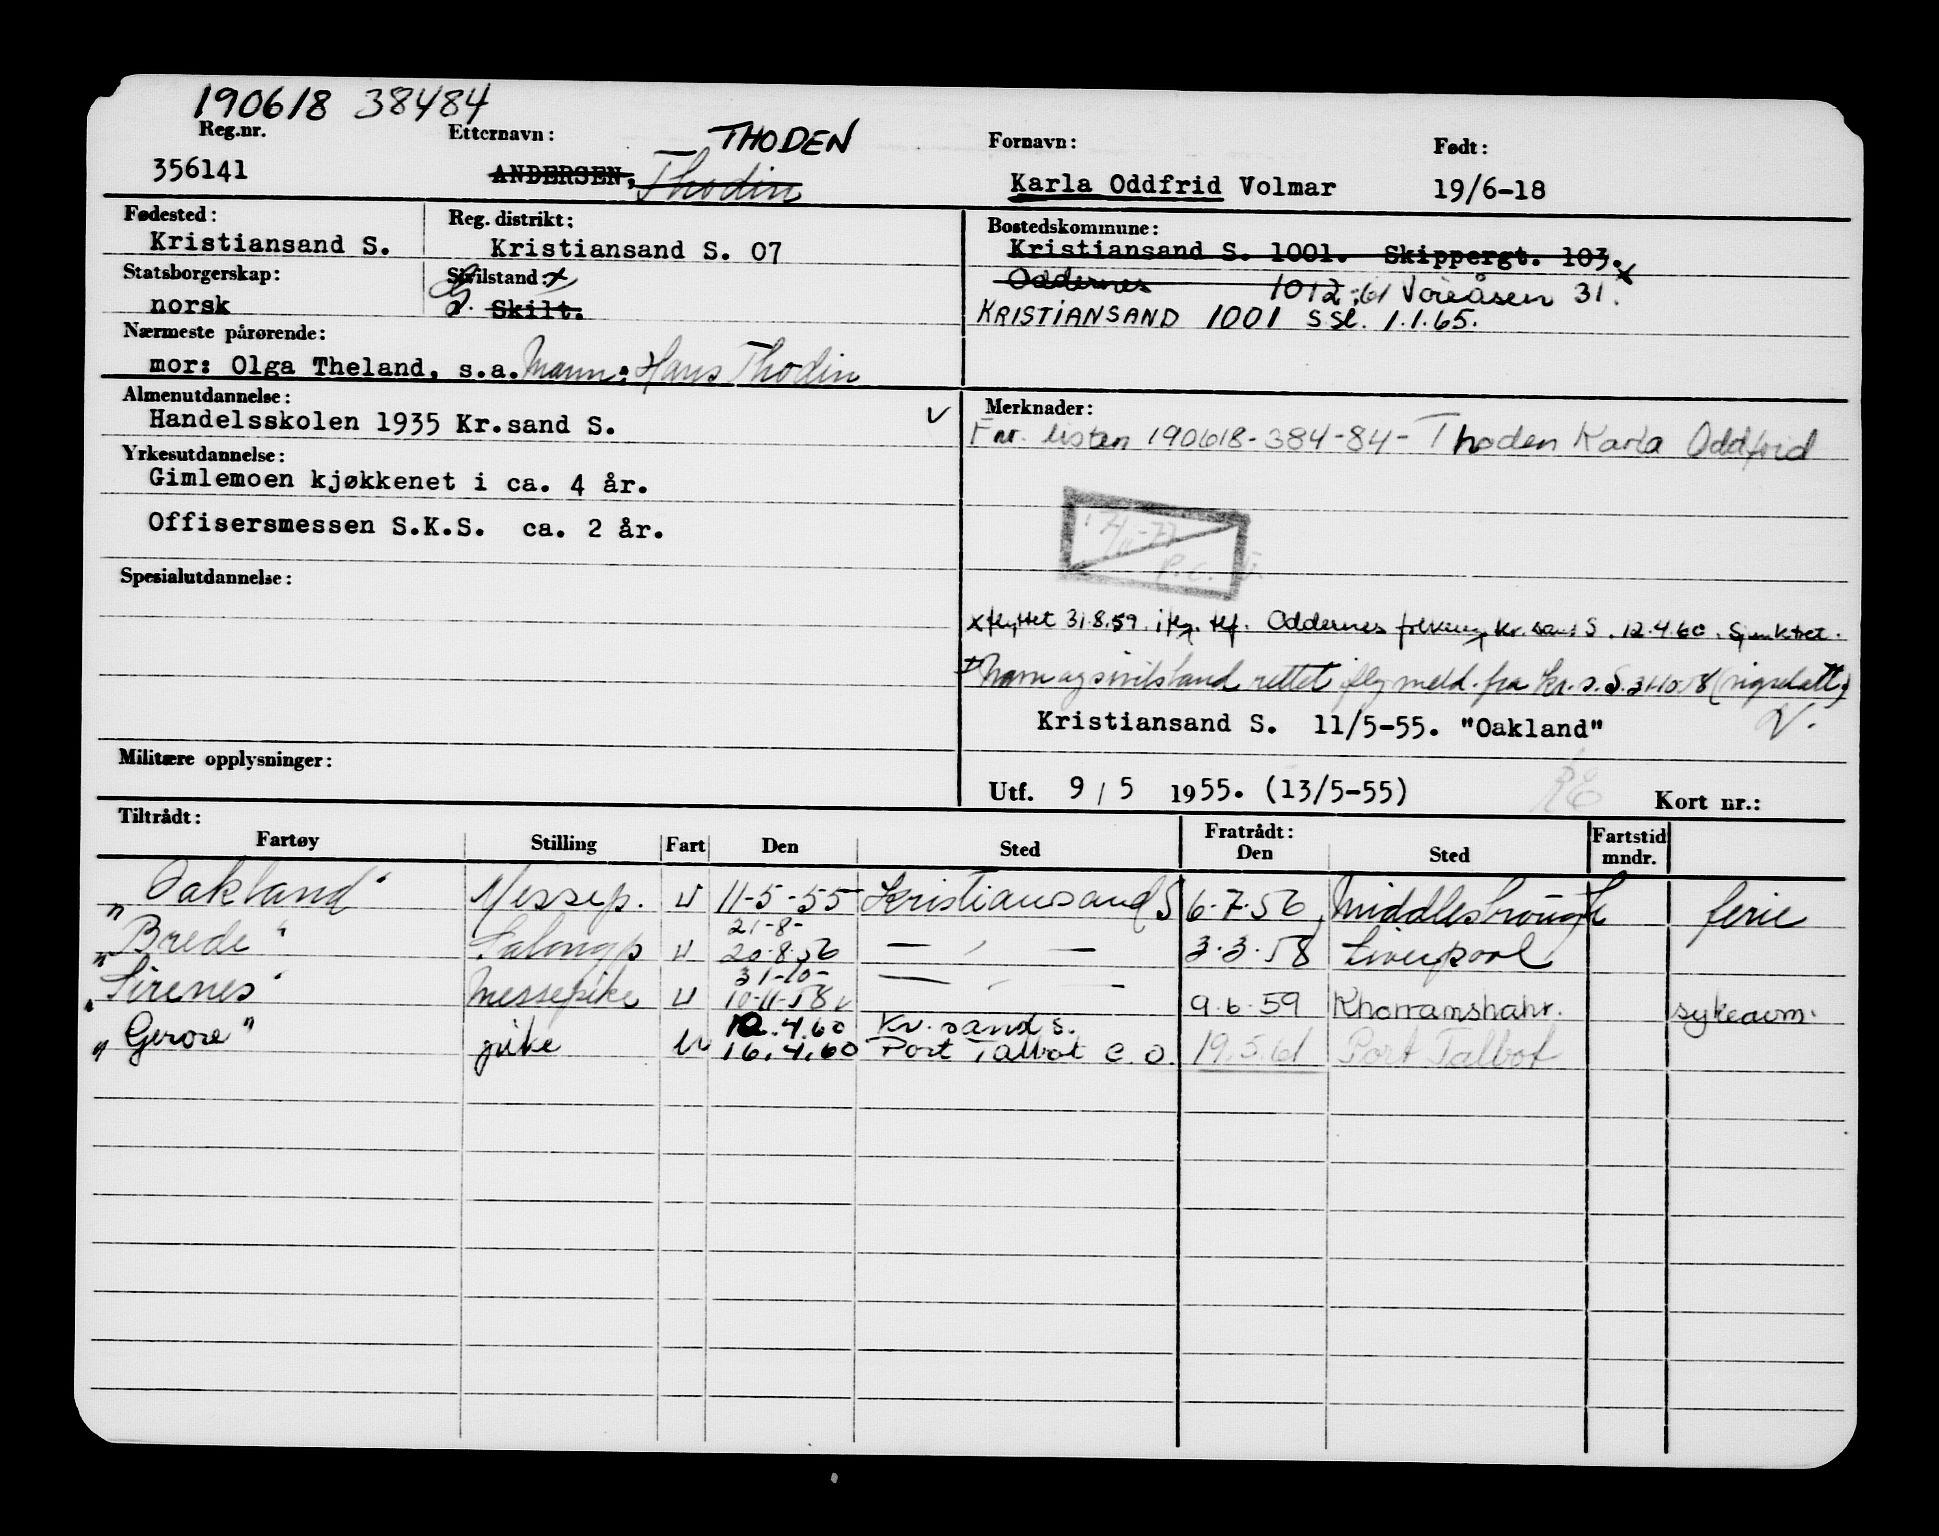 190618 38484
Reg.nr. Etternavn: THODEN Fornavn: Født:
356141 ANDERSEN, Thodin Karla Oddfrid Volmar 19/6-18
Fødested: Reg. distrikt: Bostedskommune:
Kristiansand S. Kristiansand S. 07 Kristiansand S. 1001. Skippergt. 103.
Statsborgerskap: Sivilstand: Oddernes 1012 Voieåsen 31.
norsk Skilt. KRISTIANSAND 1001 SSE. 1.1.65.
Nærmeste pårørende:
mor: Olga Theland, s.a. Mann: Hans Thodin
Almenutdannelse: Merknader:
Handelsskolen 1935 Kr.sand S. Fnr. listen 190618-384-84- Thoden Karla Oddfrid
Yrkesutdannelse:
Gimlemoen kjøkkenet i ca. 4 år.
Offisersmessen S.K.S. ca. 2 år.
Spesialutdannelse:
x flyttet 31.8.59. Oddernes Kr.sand S. 12.4.60.
Navn og sivilstand rettet meld. fra Kr.s.S.
Kristiansand S. 11/5-55. "Oakland"
Militære opplysninger:
Utf. 9/5 1955. (13/5-55) Kort nr.:
Tiltrådt: Fratrådt: Fartstid
Fartøy Stilling Fart Den Sted Den Sted mndr.
"Oakland" Messep. u 11-5-55 Kristiansand S 6.7.56 Middlesbrough ferie
21-8-
"Brede" Salongp u 20.8.56 — " — 3.3.58 Liverpool
31-10-
"Sirenes" Messepike u 10-11-58 — " — 9.6.59 Khorramshahr. sykeavm.
12.4.60 Kr. sand S.
"Gerore" pike u 16.4.60 Port Talbot e.o. 19.5.61 Port Talbot